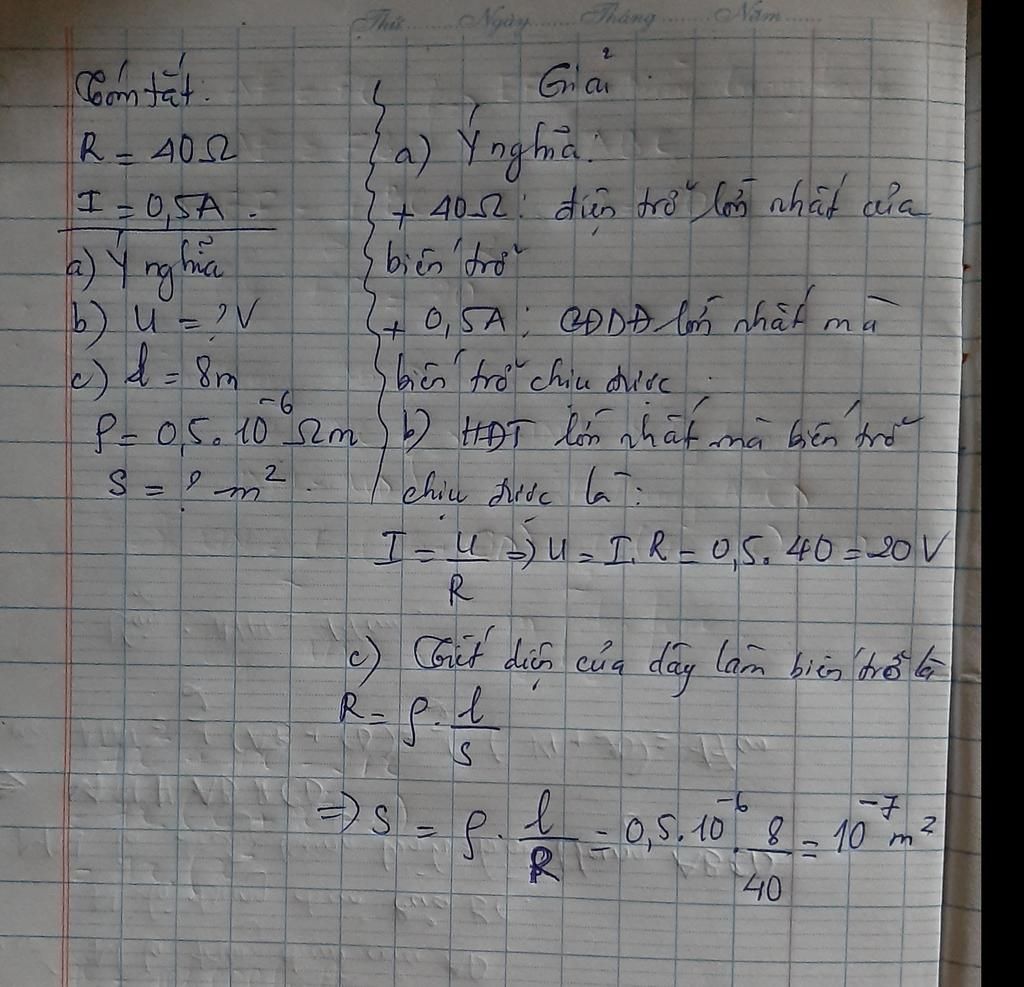 Thứ Ngày Tháng Năm
Tóm tắt:
R = 40Ω
I = 0,5A.
a) Ý nghĩa
b) U = ? V
c) l = 8m
ρ = 0,5.10⁻⁶ Ωm
S = ? m².
Giải
a) Ý nghĩa:
+ 40Ω: điện trở lớn nhất của
biến trở
+ 0,5A: CĐDĐ lớn nhất mà
biến trở chịu được.
b) HĐT lớn nhất mà biến trở
chịu được là:
I = U/R => U = I.R = 0,5.40 = 20 V
c) Tiết diện của dây làm biến trở là
R = ρ. l/S
=> S = ρ. l/R = 0,5.10⁻⁶. 8/40 = 10⁻⁷ m²